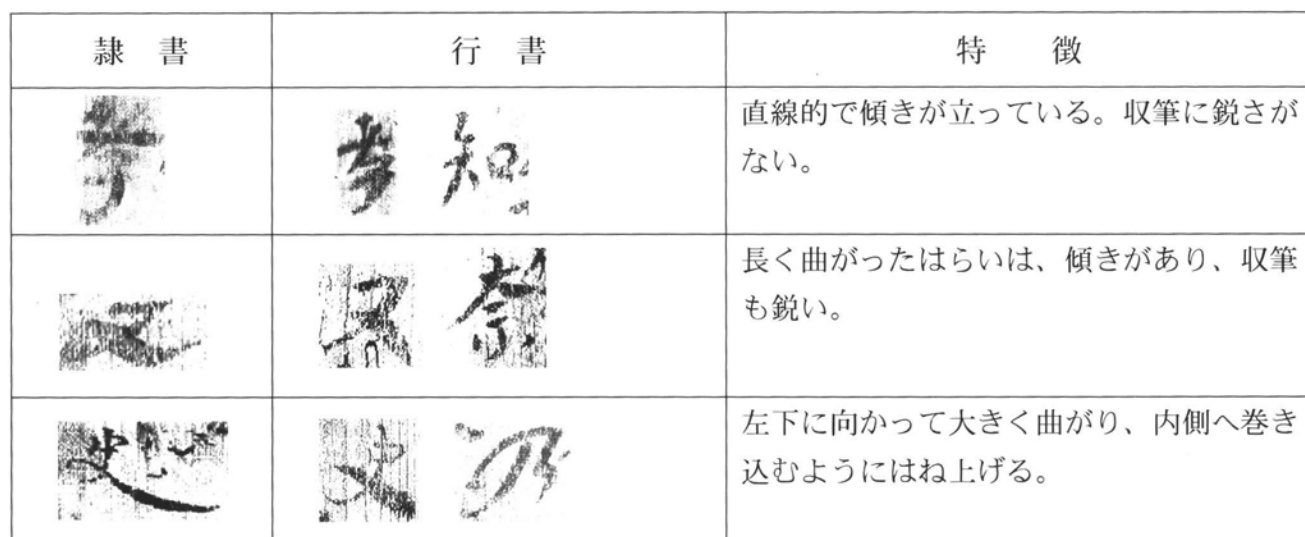 隷　書
行　書
特　　徴
直線的で傾きが立っている。収筆に鋭さが
ない。
長く曲がったはらいは、傾きがあり、収筆
も鋭い。
左下に向かって大きく曲がり、内側へ巻き
込むようにはね上げる。